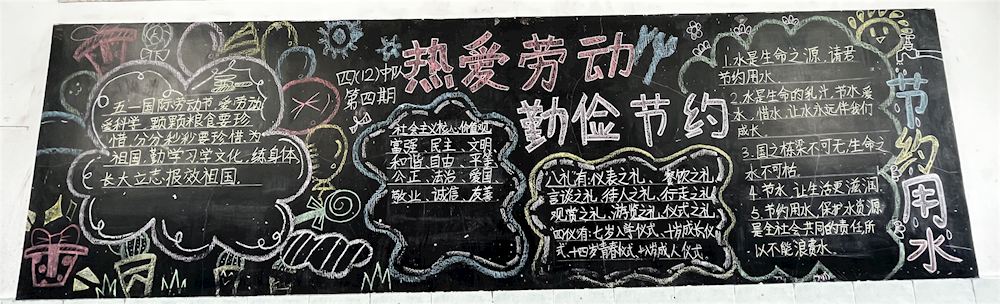 热爱劳动
勤俭节约
四(12)中队
第四期
五一国际劳动节,爱劳动,
爱科学,颗颗粮食要珍
惜,分分秒秒要珍惜,为
祖国,勤学习学文化,练身体,
长大立志报效祖国。
社会主义核心价值观
富强、民主、文明
和谐、自由、平等
公正、法治、爱国、
敬业、诚信、友善
八礼有:仪表之礼、餐饮之礼、
言谈之礼、待人之礼、行走之礼、
观赏之礼、游览之礼、仪式之礼,
四仪有:七岁入学仪式、十岁成长仪
式、十四岁青春仪式、十八岁成人仪式
1.水是生命之源,请君
节约用水
2.水是生命的乳汁,节水爱
水,惜水,让水永远伴我们
成长
3.国之栋梁不可无,生命之
水不可枯。
4.节水,让生活更滋润
5.节约用水,保护水资源
是全社会共同的责任所
以不能浪费水
节约用水